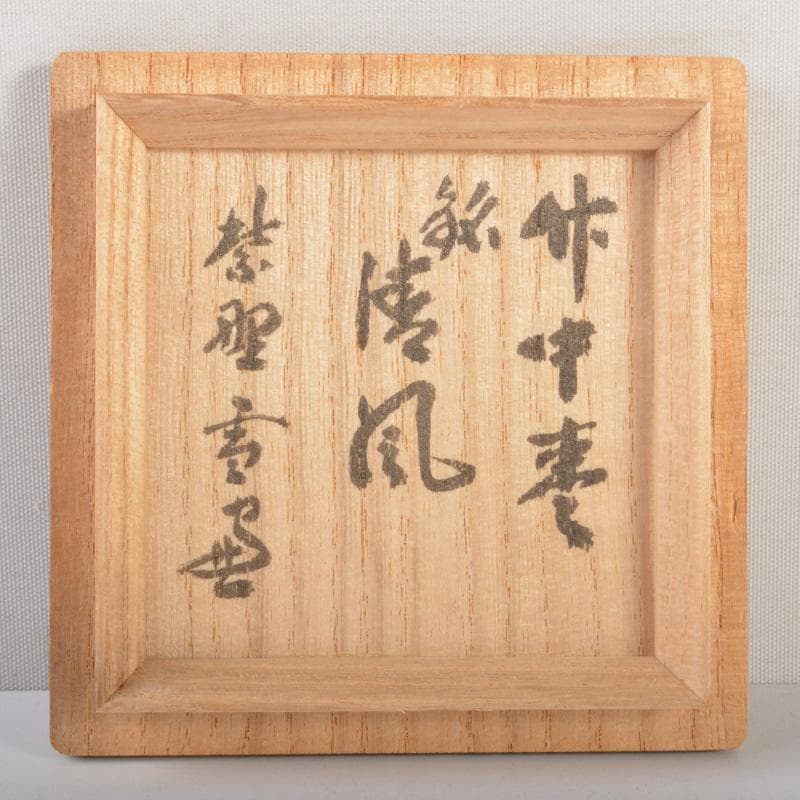 竹中棗
銘
清風
紫野雪窓